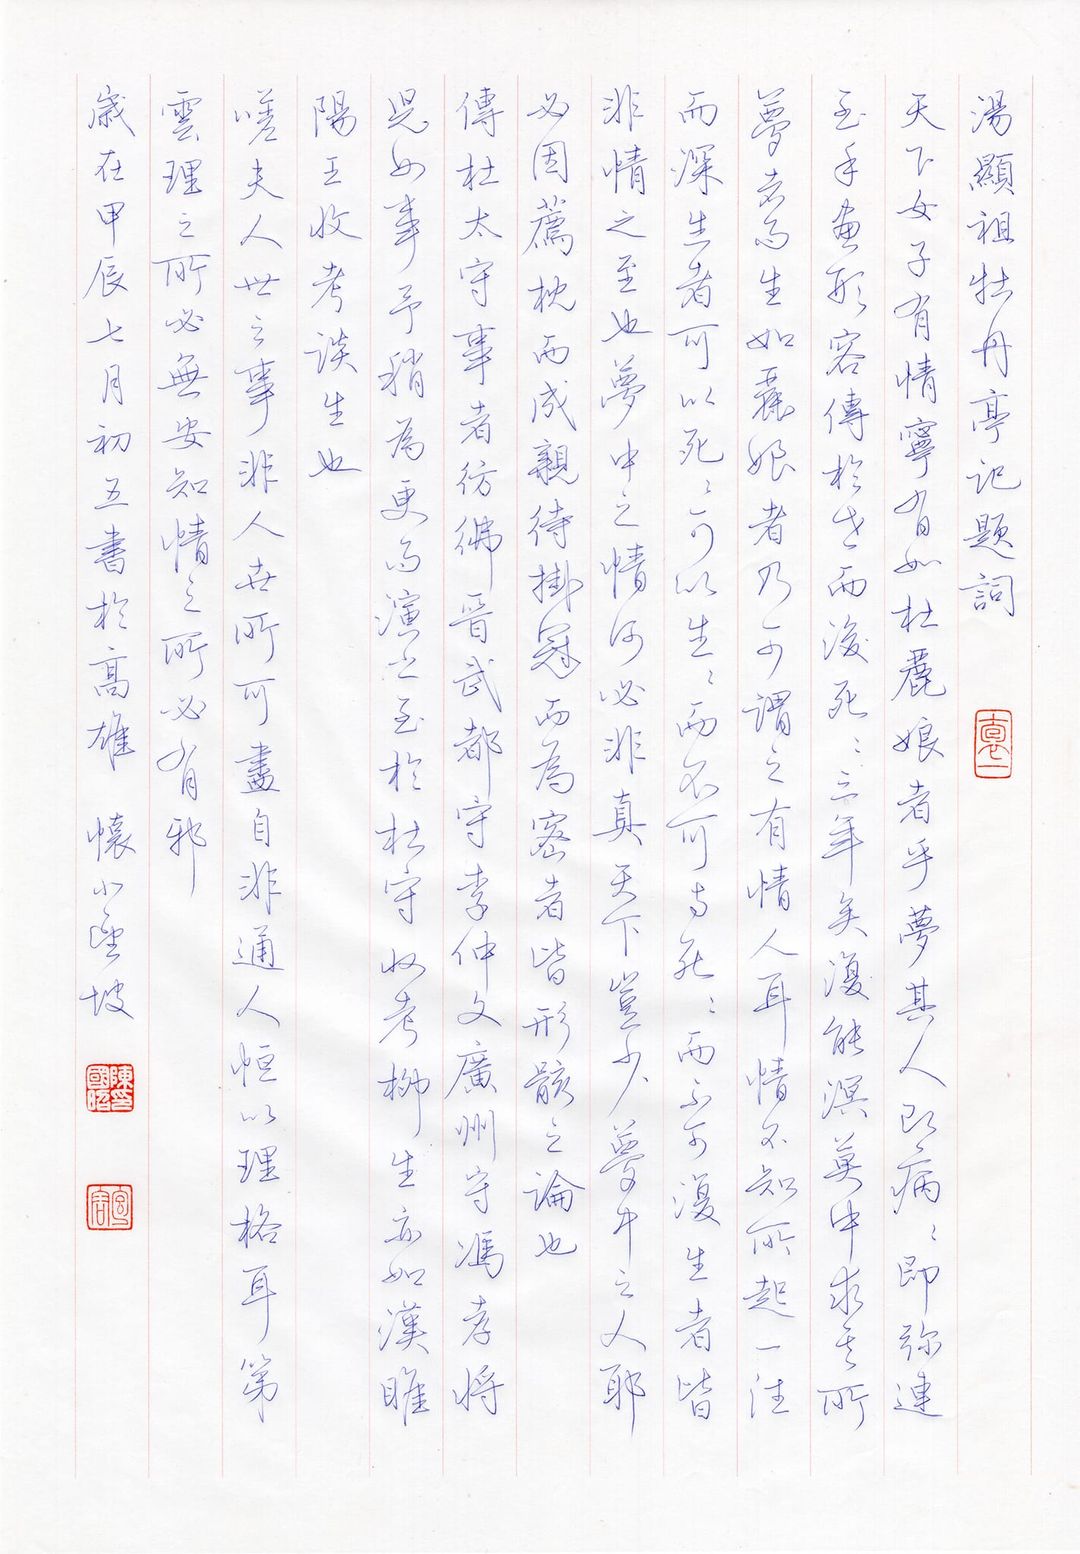 湯顯祖牡丹亭記題詞
天下女子有情寧有如杜麗娘者乎夢其人即病〻即彌連
至手畫形容傳於世而後死〻三年矣復能溟莫中求其所
夢者而生如麗娘者乃可謂之有情人耳情不知所起一往
而深生者可以死〻可以生〻而不可與死〻而不可復生者皆
非情之至也夢中之情何必非真天下豈少夢中之人耶
必因薦枕而成親待掛冠而為密者皆形骸之論也
傳杜太守事者彷彿晉武都守李仲文廣州守馮孝將
兒女事予稍為更而演之至於杜守收考柳生亦如漢睢
陽王收考談生也
嗟夫人世之事非人世所可盡自非通人恒以理格耳第
雲理之所必無安知情之所必有邪
歲在甲辰七月初五書於高雄 懷小坡
陳國昭印